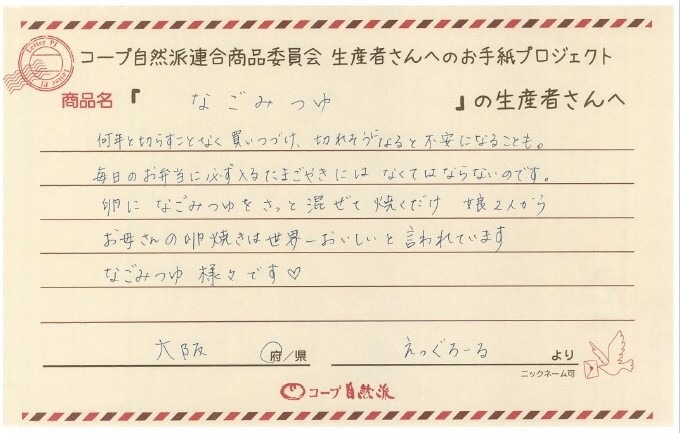 Letter PJ
Letter PJ
コープ自然派連合商品委員会 生産者さんへのお手紙プロジェクト
商品名『 なごみつゆ 』の生産者さんへ
何年と切らすことなく買いつづけ、切れそうになると不安になることも。
毎日のお弁当に必ず入るたまごやきには なくてはならないのです。
卵に なごみつゆをさっと混ぜて 焼くだけ 娘2人から
お母さんの卵焼きは世界一おいしいと言われています
なごみつゆ 様々です♡
大阪 府/県 えっぐろーる より
ニックネーム可
コープ自然派